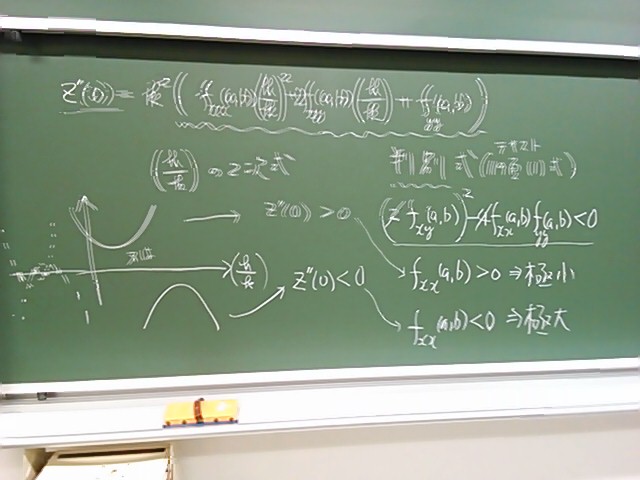 z''(0) = k² ( f_xx(a,b)(h/k)² + 2f_xy(a,b)(h/k) + f_yy(a,b) )
(h/k) の2次式
判別式(
z''(0) > 0
(2f_xy(a,b))² - 4f_xx(a,b)f_yy(a,b) < 0
(h/k)
z''(0) < 0
f_xx(a,b) > 0 ⇒ 極小
f_xx(a,b) < 0 ⇒ 極大